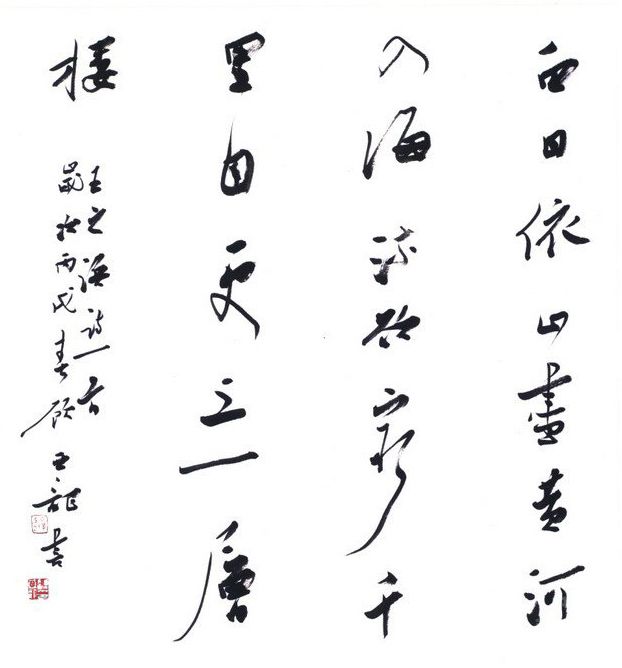 白日依山盡黄河
入海流欲窮千
里目更上一層
樓
王之渙詩一首
歲在丙戌春顧亞龍書